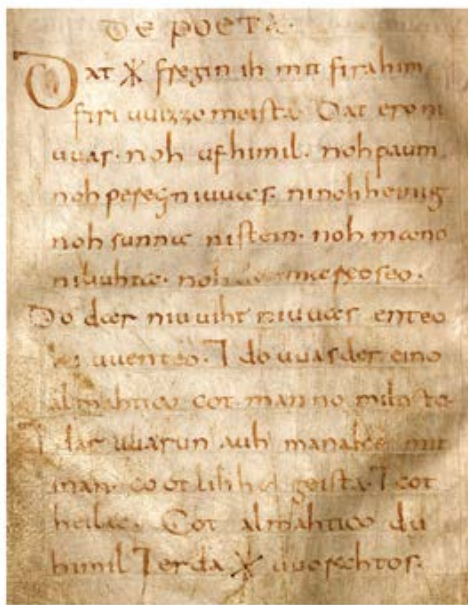 DE POETA·
Dat * fregin ih mit firahim
firi uuizzo meista· Dat ero ni
uuas· noh ufhimil· noh paum
noh pereg niuuas· ninohheinig
noh sunna nistein· noh mano
niliuhta· noh der mareoseo·
Do dar niuuiht niuuas enteo
ni uuenteo· ⁊ do uuas der eino
almahtico cot manno miltisto
⁊ dar uuarun auh manake mit
inan· cootlihhe geista· ⁊ cot
heilac· Cot almahtico du
himil ⁊ erda * uuorahtos·